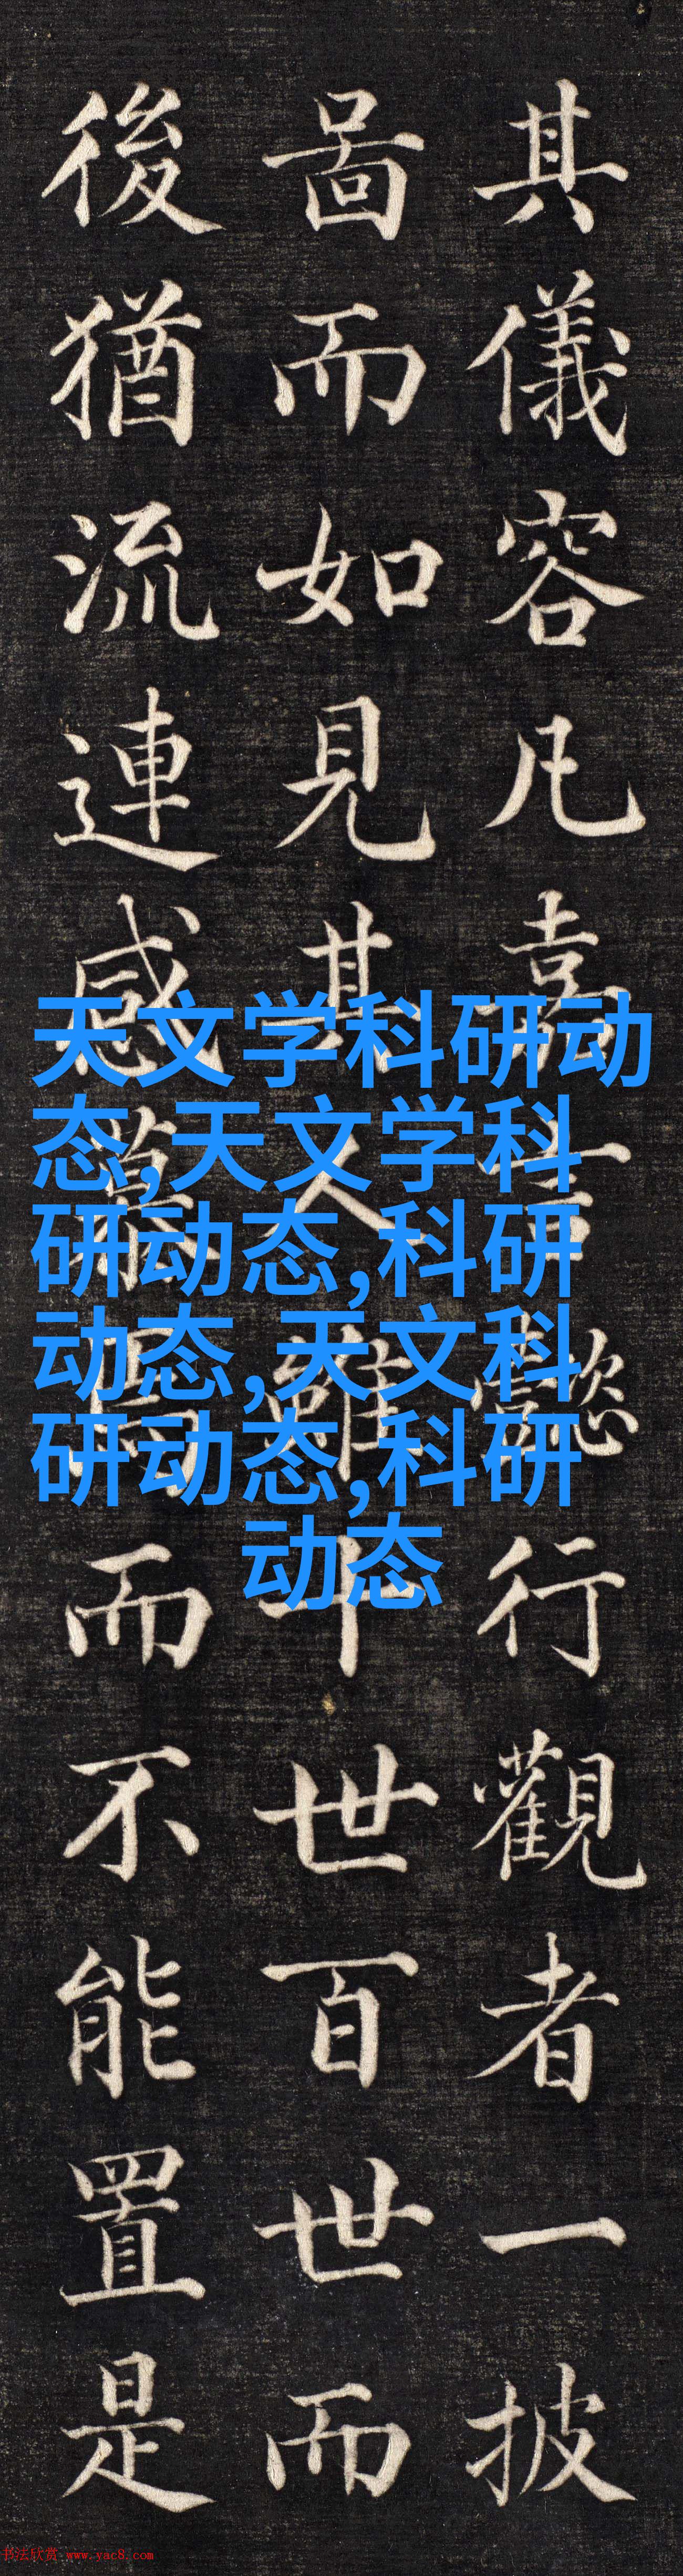 其儀容凡嘉言懿行觀者一披
啚而如見其人雖千世百世而
後猶流連感慕因而不能置是
天文学科研动
态,天文学科
研动态,科研
动态,天文科
研动态,科研
动态
书法欣赏 www.yac8.com